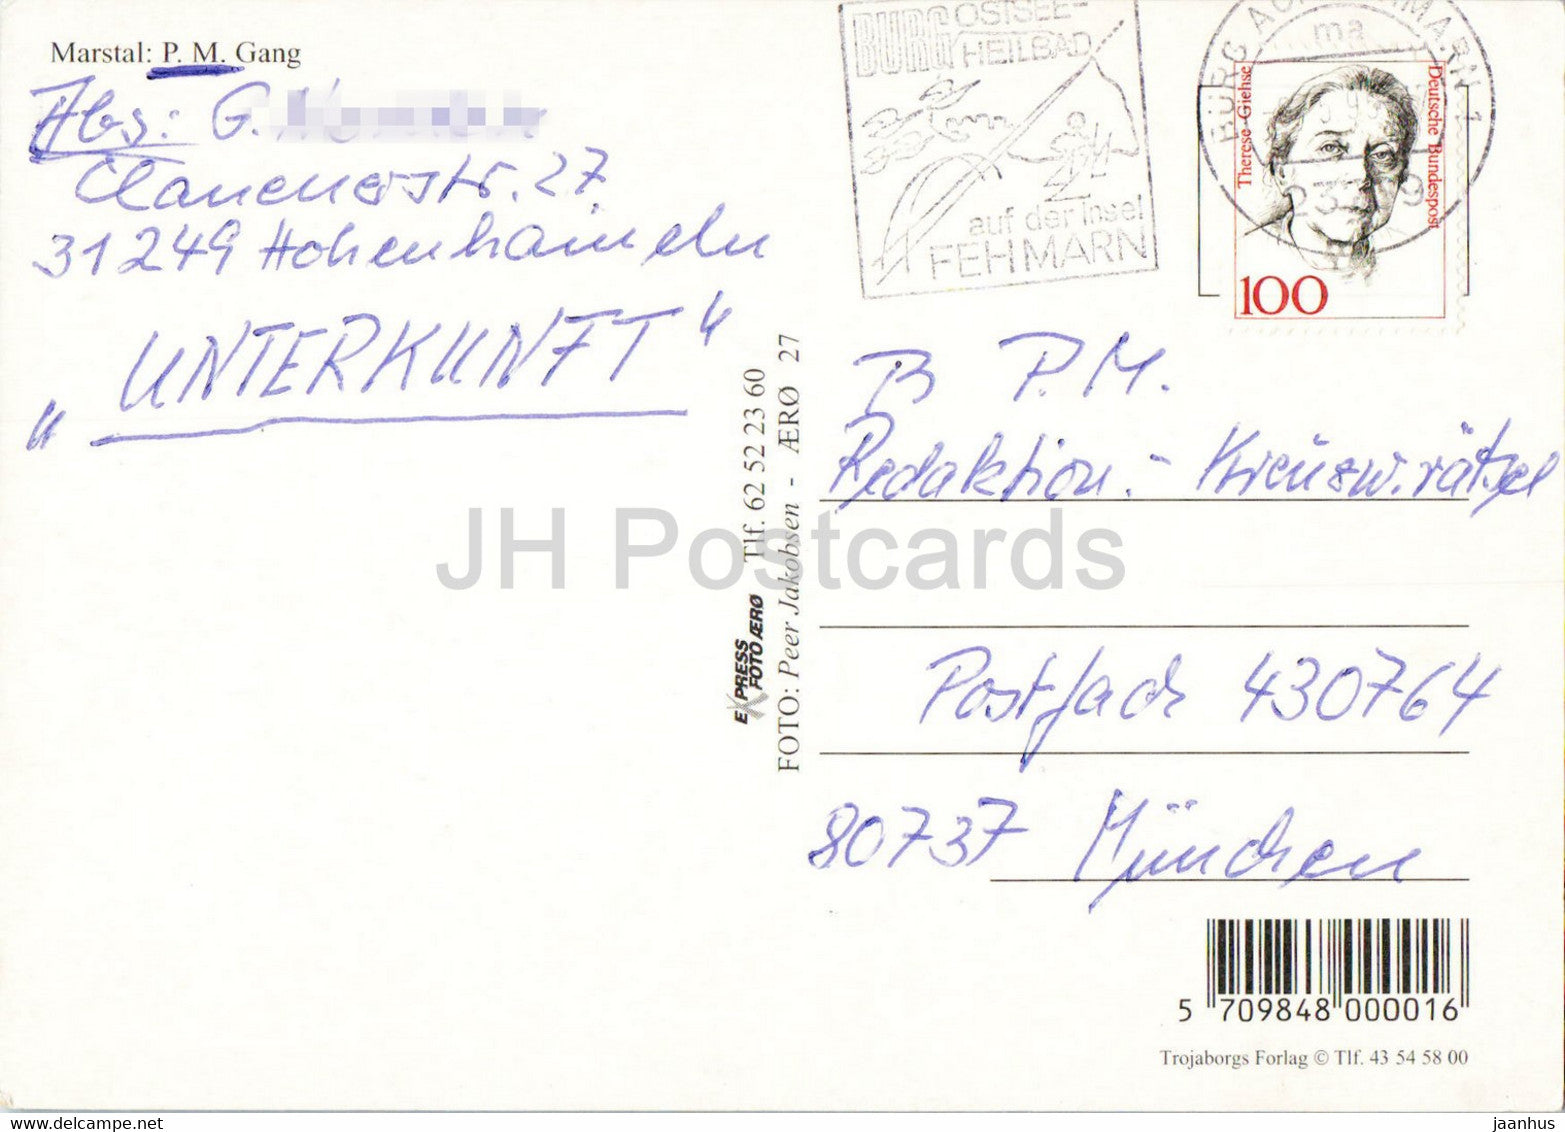 Marstal: P. M. Gang
Abs: G.
31249 Hohenhameln
"UNTERKUNFT"
BURG OSTSEE-
HEILBAD
auf der Insel
FEHMARN
ma
Therese Giehse
Deutsche Bundespost
100
P.M.
Redaktion - Kreuzw.rätsel
Postfach 430764
80737 München
EXPRESS
FOTO ÆRØ
Tlf. 62 52 23 60
FOTO: Peer Jakobsen - ÆRØ 27
JH Postcards
5 709848 000016
Trojaborgs Forlag © Tlf. 43 54 58 00
www.delcampe.net
jaanhus